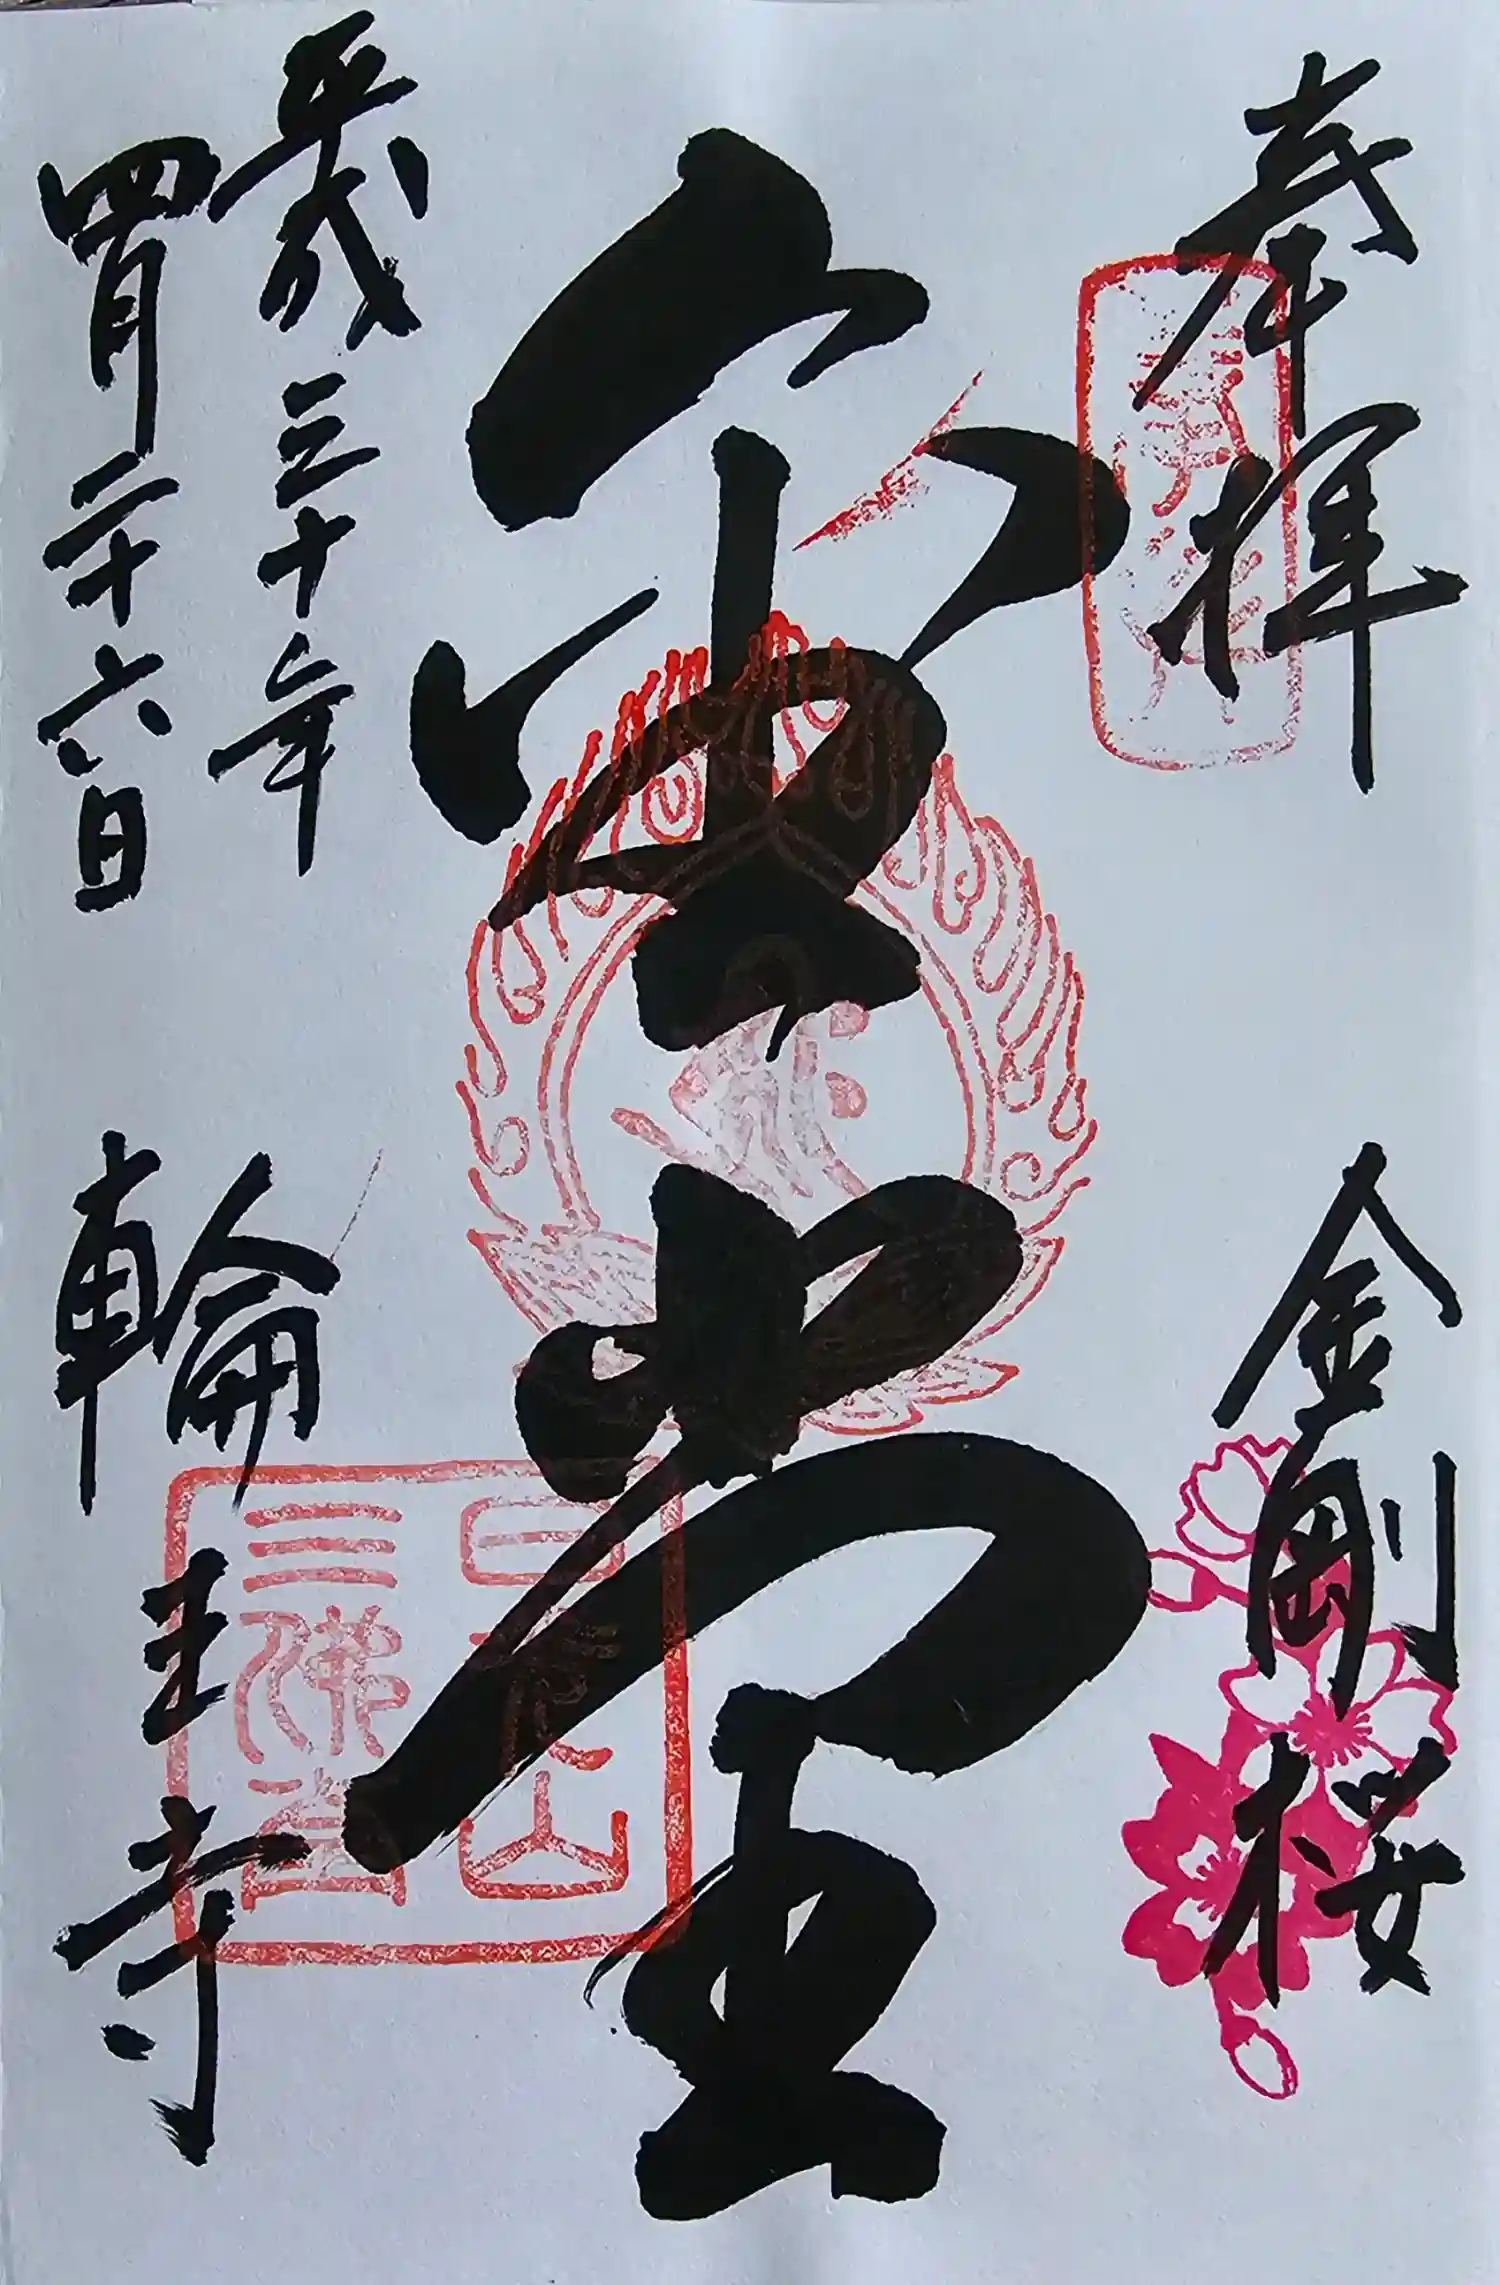 奉拝 金剛桜
金堂
平成三十年
四月二十六日
輪王寺
日光山
三佛堂